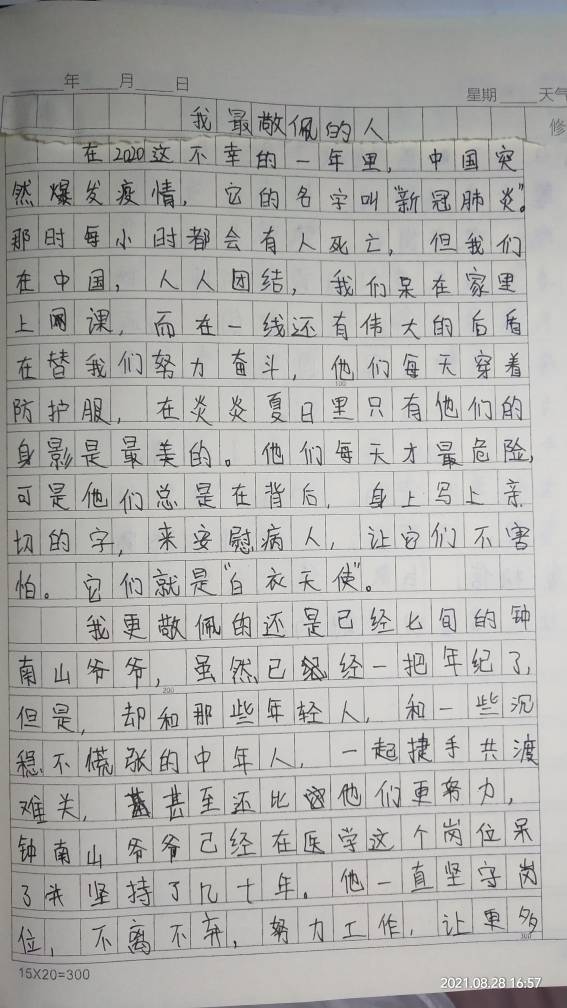 年 月 日
星期 天气
修
我最敬佩的人
在2020这不幸的一年里，中国突
然爆发疫情，它的名字叫“新冠肺炎”。
那时每小时都会有人死亡，但我们
在中国，人人团结，我们呆在家里
上网课，而在一线还有伟大的后盾
在替我们努力奋斗，他们每天穿着
防护服，在炎炎夏日里只有他们的
身影是最美的。他们每天才最危险，
100
可是他们总是在背后，身上写上亲
切的字，来安慰病人，让它们不害
怕。它们就是“白衣天使”。
我更敬佩的还是已经七旬的钟
南山爷爷，虽然已经一把年纪了，
200
但是，却和那些年轻人，和一些沉
稳不慌张的中年人，一起捷手共渡
难关，甚至还比他们更努力，
钟南山爷爷已经在医学这个岗位呆
了坚持了几十年。他一直坚守岗
位，不离不弃，努力工作，让更多
300
15X20=300
2021.08.28 16:57